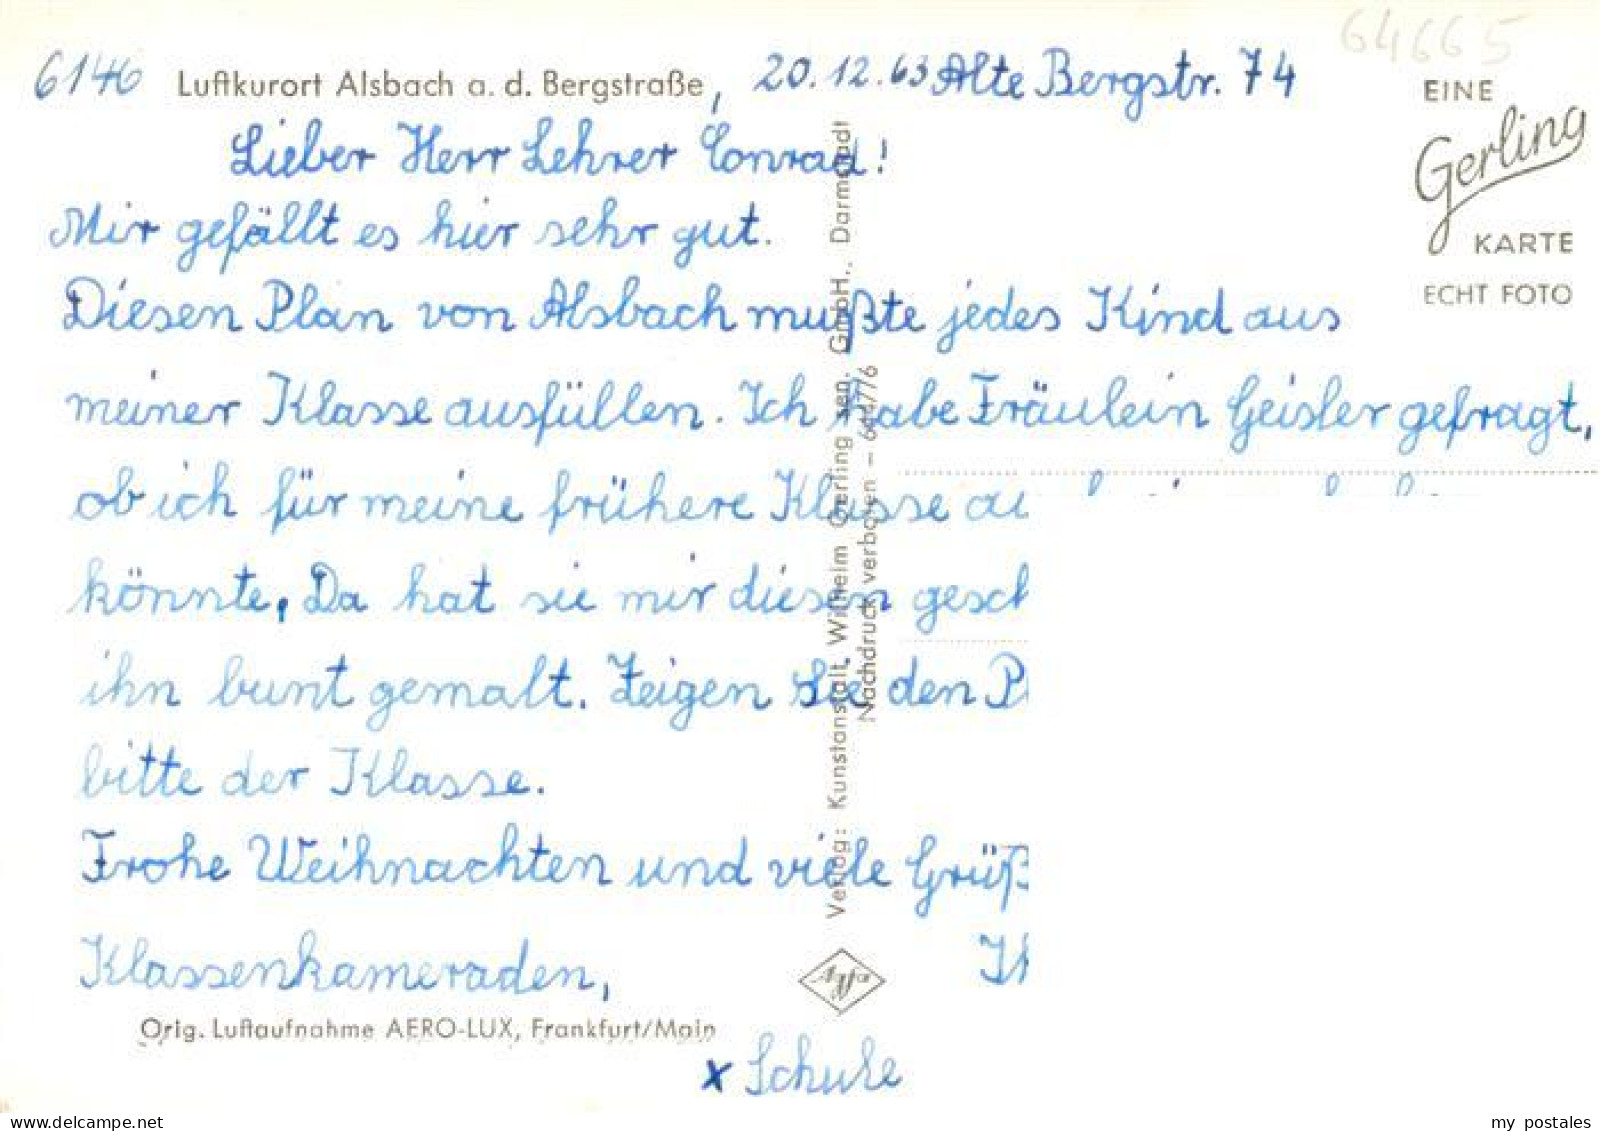 64665
6146 Luftkurort Alsbach a. d. Bergstraße, 20.12.63 Alte Bergstr. 74
EINE
Gerling
KARTE
ECHT FOTO
Lieber Herr Lehrer Conrad!
Mir gefällt es hier sehr gut.
Diesen Plan von Alsbach mußte jedes Kind aus
meiner Klasse ausfüllen. Ich habe Fräulein Geisler gefragt,
ob ich für meine frühere Klasse au
könnte. Da hat sie mir diesen gesch
ihn bunt gemalt. Zeigen Sie den Pl
bitte der Klasse.
Frohe Weihnachten und viele Grüß
Klassenkameraden,
Ih
Verlag: Kunstanstalt Wilhelm Gerling sen. GmbH., Darmstadt
Nachdruck verboten –
Agfa
Orig. Luftaufnahme AERO-LUX, Frankfurt/Main
x Schule
delcampe.net
my_postales